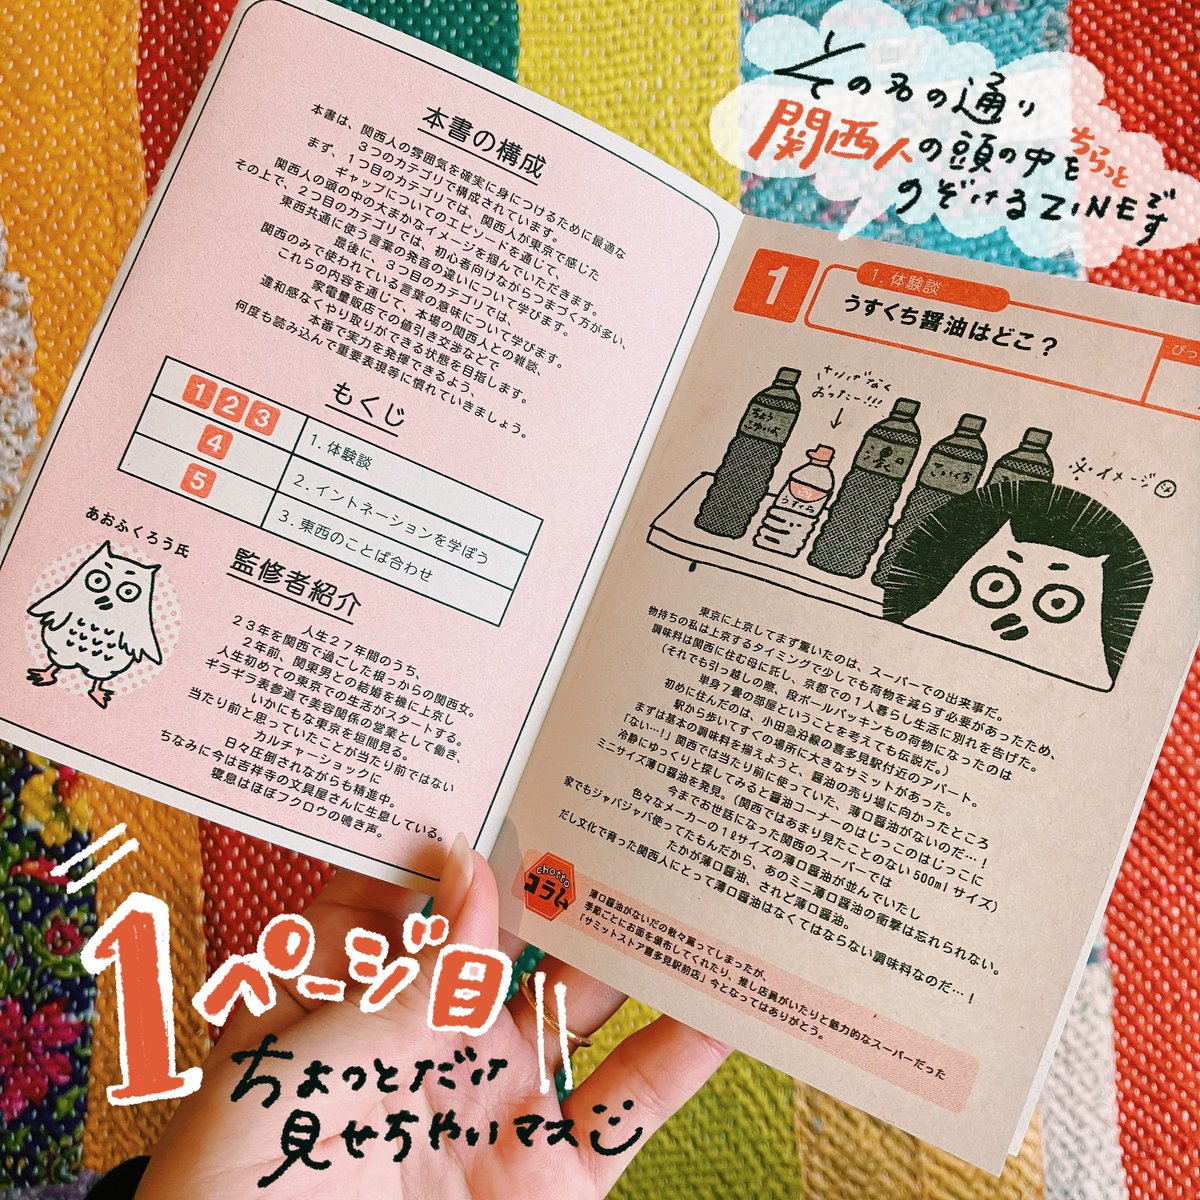 その名の通り
関西人の頭の中をちらっと
のぞけるZINEです
本書の構成
本書は、関西人の雰囲気を確実に身につけるために最適な
3つのカテゴリで構成されています。
まず、1つ目のカテゴリでは、関西人が東京で感じた
ギャップについてのエピソードを通じて、
関西人の頭の中の大まかなイメージを掴んでいただきます。
その上で、2つ目のカテゴリでは、初心者向けながらつまづく方が多い、
東西共通に使う言葉の発音の違いについて学びます。
最後に、3つ目のカテゴリでは、
関西のみで使われている言葉の意味について学びます。
これらの内容を通じて、本場の関西人との雑談、
家電量販店での値引き交渉などで
違和感なくやり取りができる状態を目指します。
本番で実力を発揮できるよう、
何度も読み込んで重要表現等に慣れていきましょう。
もくじ
1 2 3 1. 体験談
4 2. イントネーションを学ぼう
5 3. 東西のことば合わせ
あおふくろう氏
監修者紹介
人生27年間のうち、
23年を関西で過ごした根っからの関西女。
2年前、関東男との結婚を機に上京し
人生初めての東京での生活がスタートする。
ギラギラ表参道で美容関係の営業として働き、
いかにもな東京を垣間見る。
当たり前と思っていたことが当たり前ではない
カルチャーショックに
日々圧倒されながらも精進中。
ちなみに今は吉祥寺の文具屋さんに生息している。
寝息はほぼフクロウの鳴き声。
1
1. 体験談
うすくち醤油はどこ？
ぴっ
さりげなく
おったー!!!
うすくち
濃口
こいくち
※イメージ
東京に上京してまず驚いたのは、スーパーでの出来事だ。
物持ちの私は上京するタイミングで少しでも荷物を減らす必要があったため、
調味料は関西に住む母に託し、京都での1人暮らし生活に別れを告げた。
（それでも引っ越しの際、段ボールパッキンもの荷物になったのは
単身7畳の部屋ということを考えても伝説だ。）
初めに住んだのは、小田急沿線の喜多見駅付近のアパート。
駅から歩いてすぐの場所に大きなサミットがあった。
まずは基本の調味料を揃えようと、醤油の売り場に向かったところ
「ない…！」関西では当たり前に使っていた、薄口醤油がないのだ…！
冷静にゆっくりと探してみると醤油コーナーのはじっこのはじっこに
ミニサイズ薄口醤油を発見。（関西ではあまり見たことのない500mlサイズ）
今までお世話になった関西のスーパーでは
色々なメーカーの1ℓサイズの薄口醤油が並んでいたし
家でもジャバジャバ使ってたもんだから、あのミニ薄口醤油の衝撃は忘れられない。
たかが薄口醤油、されど薄口醤油。
だし文化で育った関西人にとって薄口醤油はなくてはならない調味料なのだ…！
chotto
コラム
薄口醤油がないだの散々罵ってしまったが、
季節ごとにお面を頒布してくれたり、推し店員がいたりと魅力的なスーパーだった
「サミットストア喜多見駅前店」今となってはありがとう。
1ページ目
ちょっとだけ
見せちゃいマス